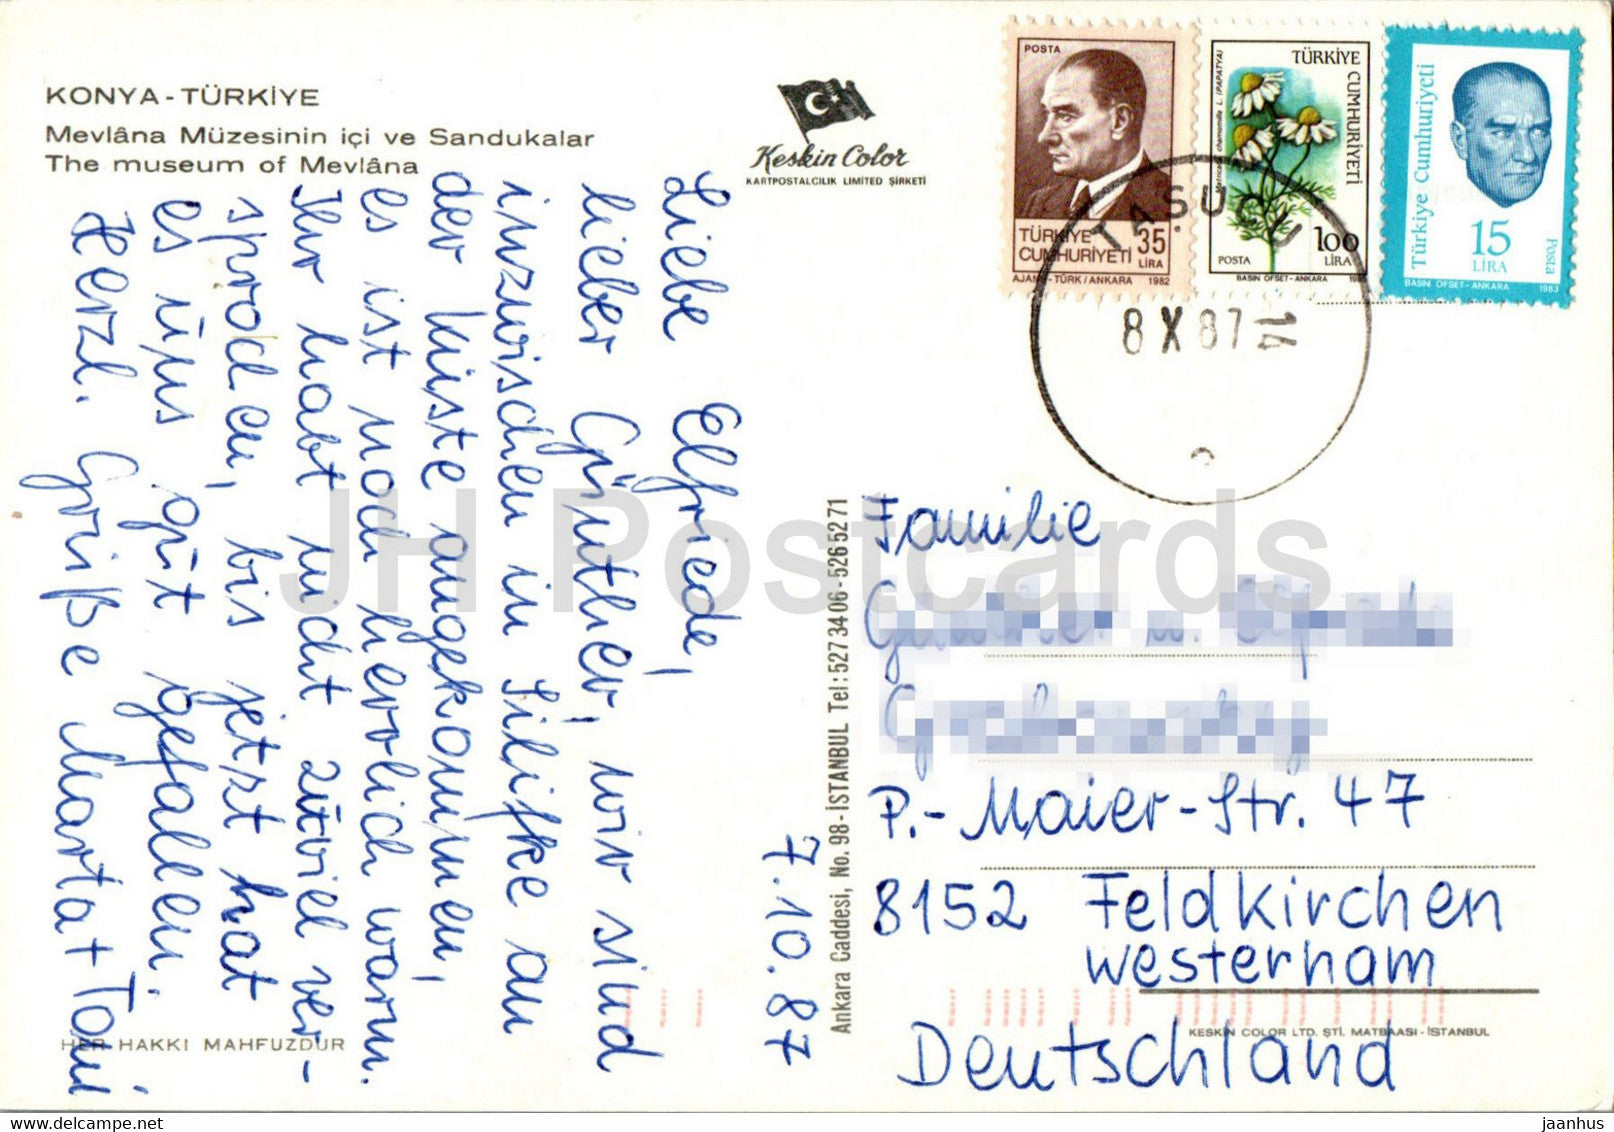 KONYA - TÜRKİYE
Mevlâna Müzesinin içi ve Sandukalar
The museum of Mevlâna
Keskin Color
KARTPOSTALCILIK LIMITED ŞİRKETİ
POSTA
TÜRKİYE 35
CUMHURİYETİ LİRA
AJANS-TÜRK / ANKARA 1982
TÜRKİYE
CUMHURİYETİ
Matricaria chamomilla L. (PAPATYA)
100
POSTA LİRA
BASIN OFSET - ANKARA
Türkiye Cumhuriyeti
Türkiye Cumhuriyeti
15
LİRA
Posta
BASIN OFSET - ANKARA 1983
TAŞUCU
8 X 87 14
7.10.87
Liebe Elfriede,
lieber Günther, wir sind
inzwischen in Silifke an
der Küste angekommen,
es ist noch herrlich warm.
Ihr habt nicht zuviel ver-
sprochen, bis jetzt hat
es uns gut gefallen.
Herzl. Grüße Marta + Toni
Ankara Caddesi, No. 98 - İSTANBUL Tel: 527 34 06 - 526 52 71
Familie
P.-Maier-Str. 47
8152 Feldkirchen
Westerham
Deutschland
HER HAKKI MAHFUZDUR
KESKİN COLOR LTD. ŞTİ. MATBAASI - İSTANBUL
JH Postcards
www.jhpostcards.com
jaanhus